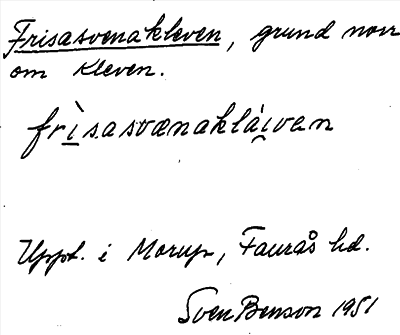 Frisasvenakleven, grund norr
om Kleven.
frìsasvænaklái̯ven
Uppt. i Morup, Faurås hd.
Sven Benson 1951